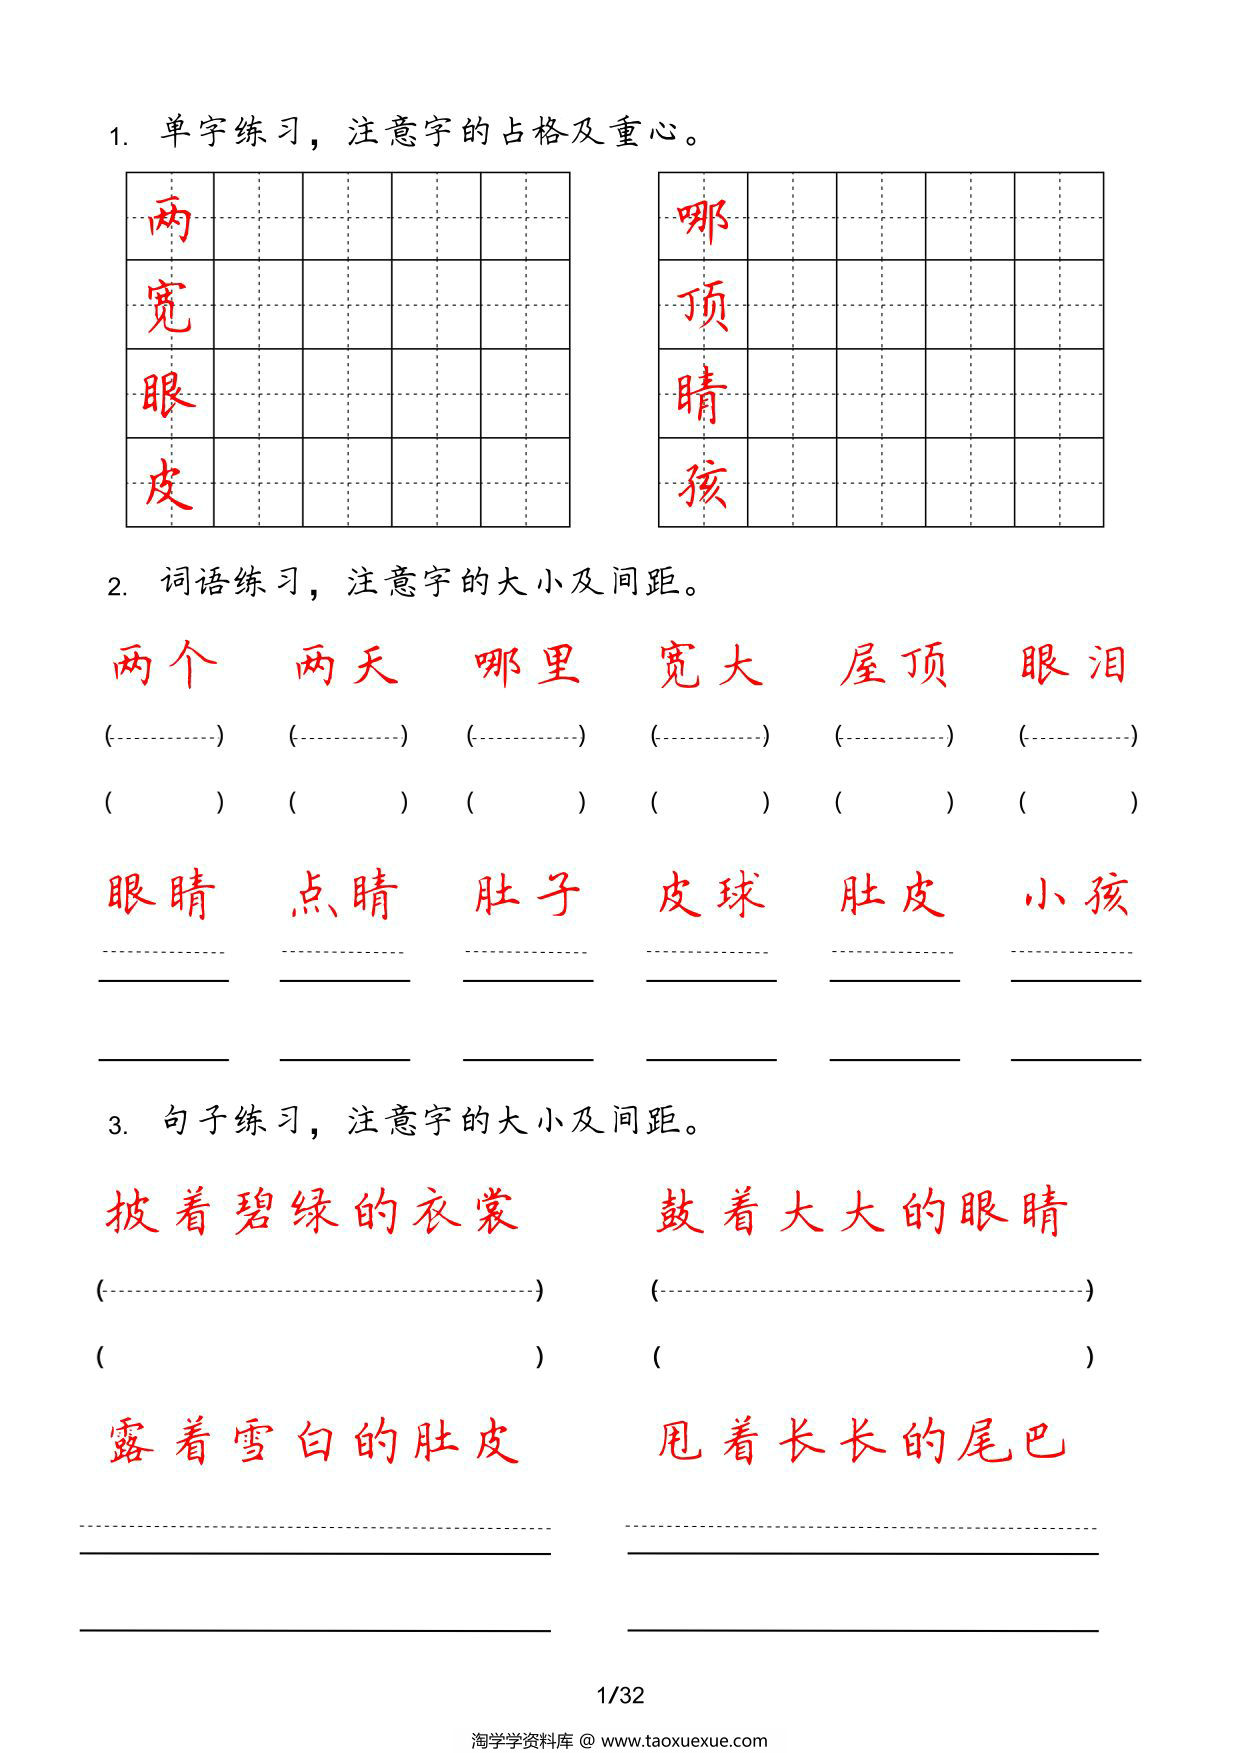 1. 单字练习，注意字的占格及重心。
两 哪
宽 顶
眼 睛
皮 孩
2. 词语练习，注意字的大小及间距。
两个 两天 哪里 宽大 屋顶 眼泪
( ) ( ) ( ) ( ) ( ) ( )
( ) ( ) ( ) ( ) ( ) ( )
眼睛 点睛 肚子 皮球 肚皮 小孩
3. 句子练习，注意字的大小及间距。
披着碧绿的衣裳 鼓着大大的眼睛
( ) ( )
( ) ( )
露着雪白的肚皮 甩着长长的尾巴
1/32
淘学学资料库 @ www.taoxuexue.com